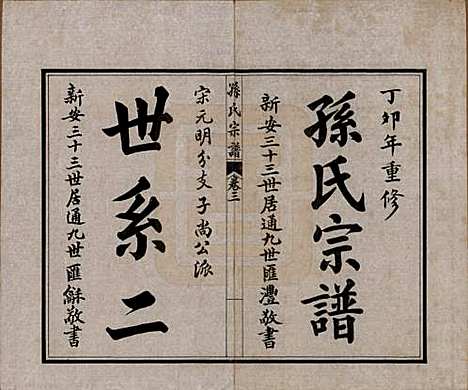 丁卯年重修
孫氏宗譜
新安三十三世居通九世匯灃敬書
孫氏宗譜 卷三
宋元明分支子尚公派
世系二
新安三十三世居通九世匯龢敬書